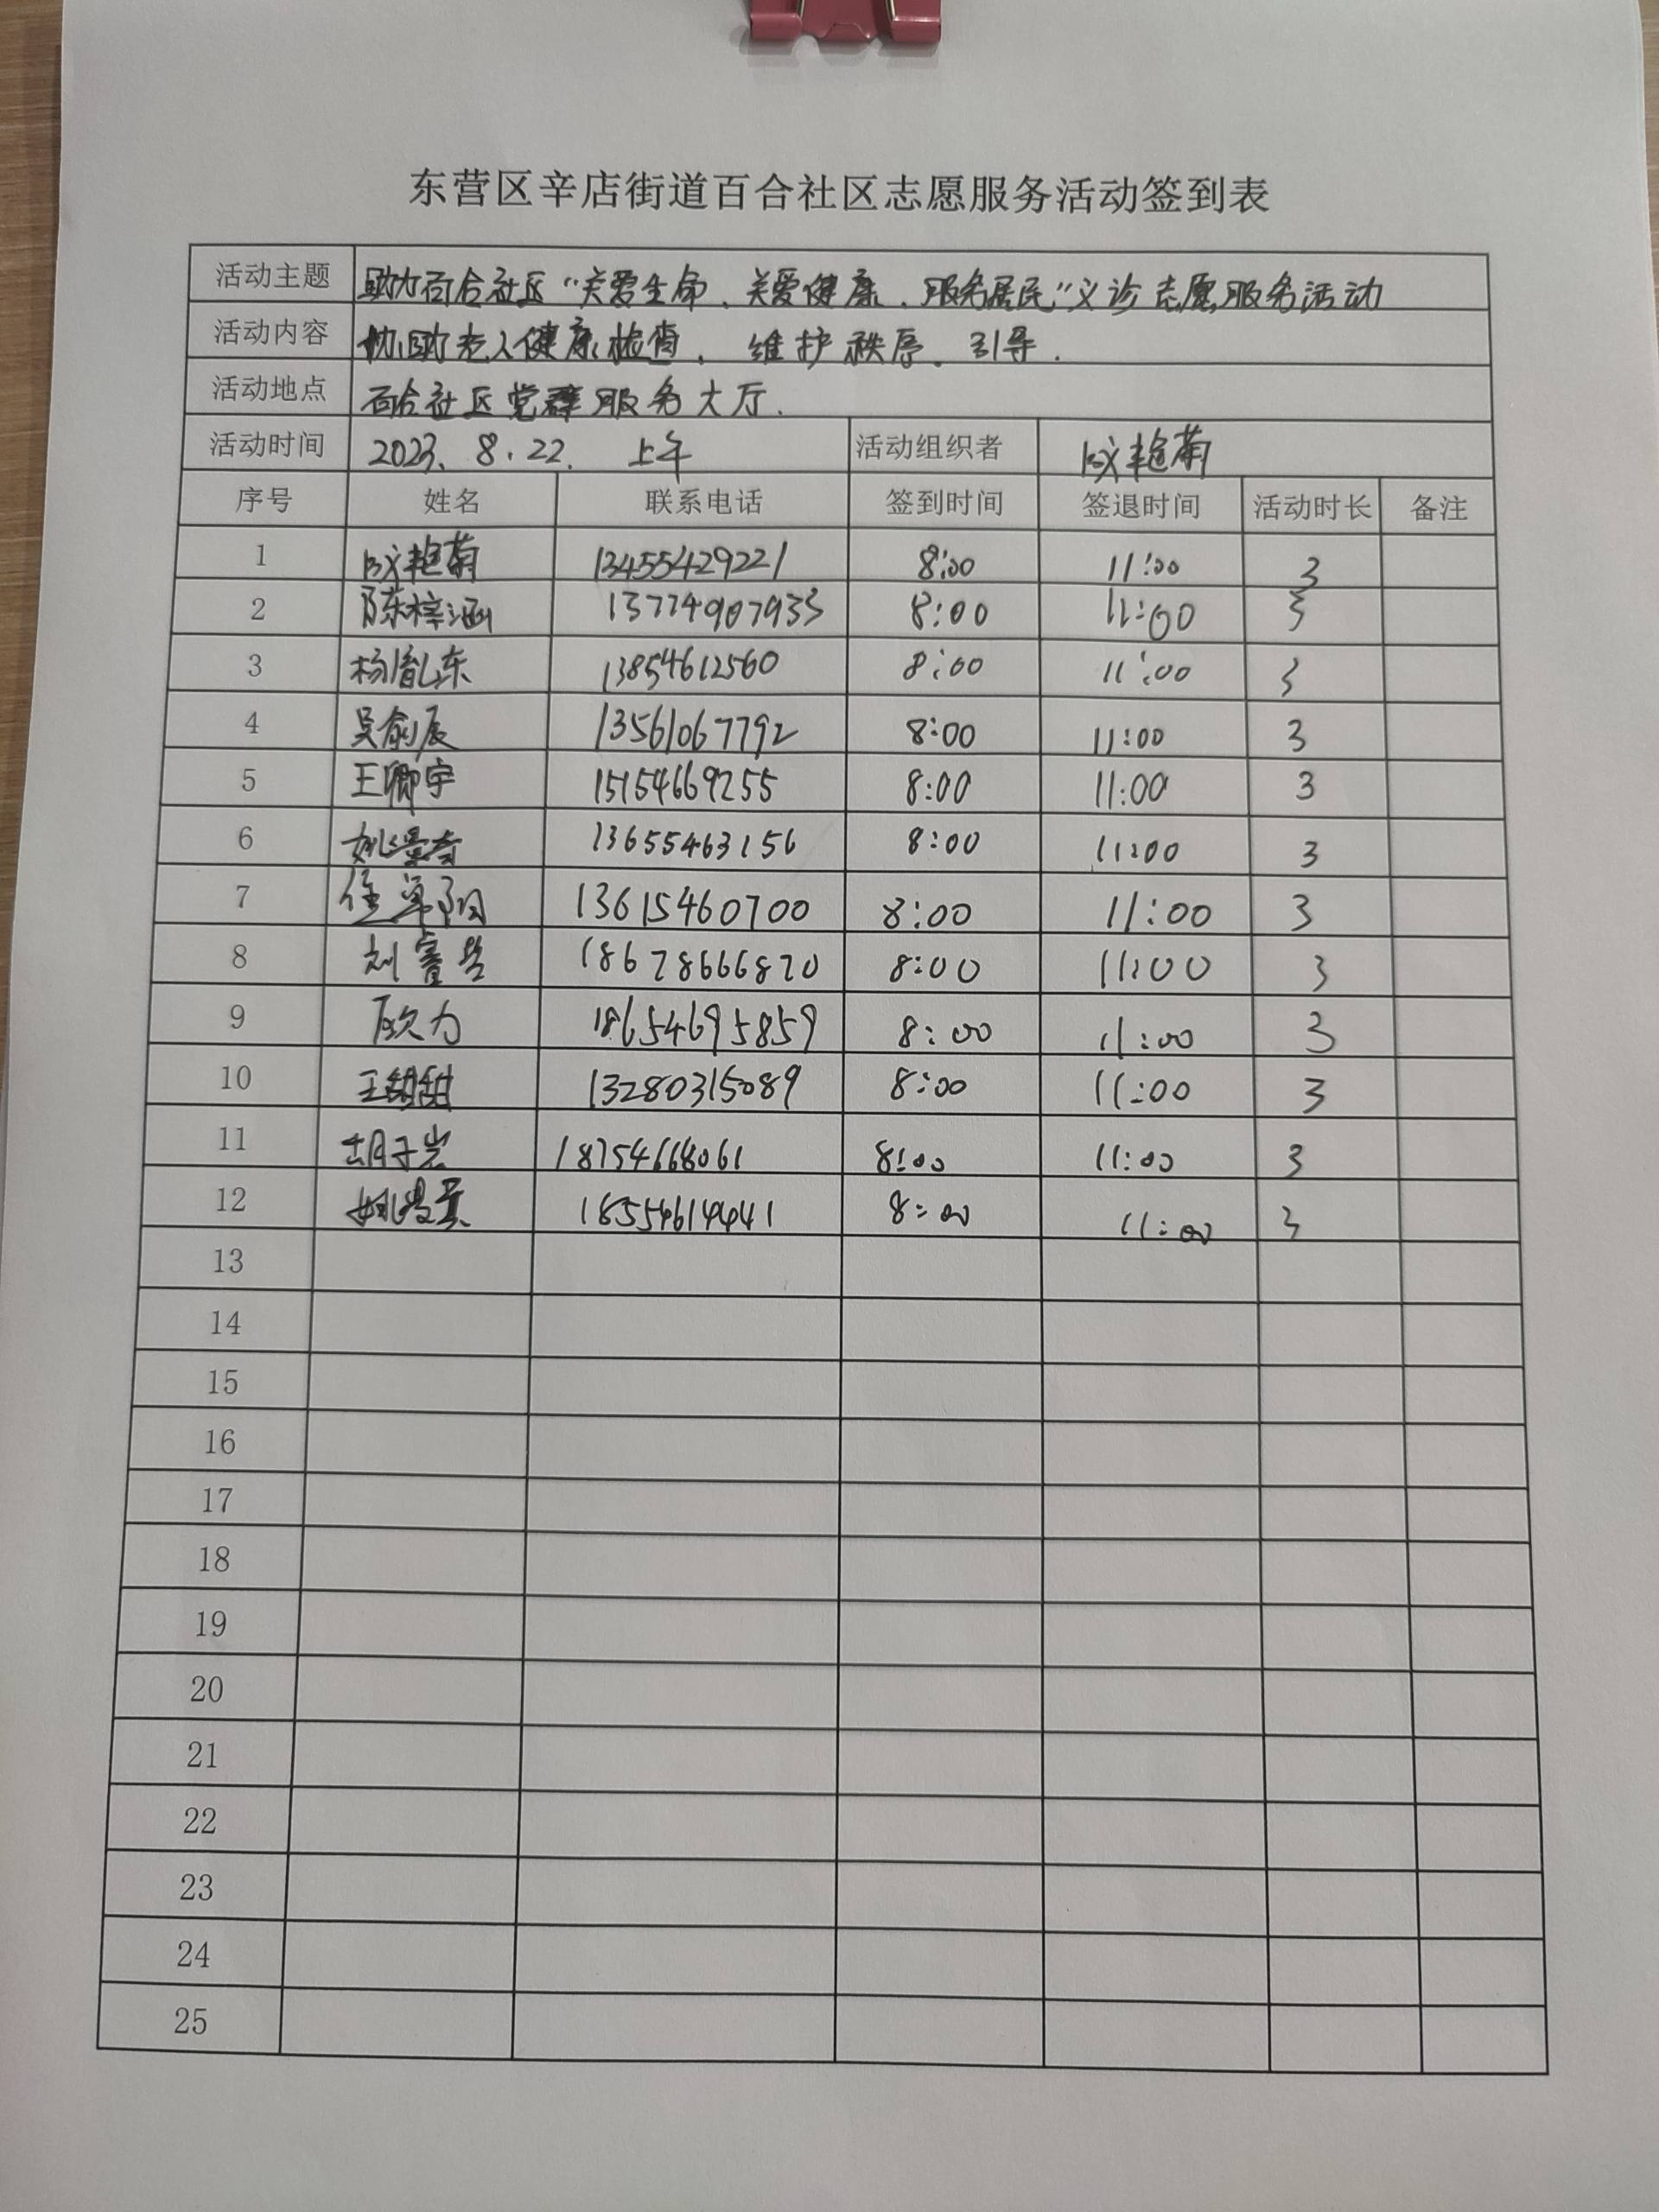 东营区辛店街道百合社区志愿服务活动签到表
活动主题 助力百合社区“关爱生命、关爱健康、服务居民”义诊志愿服务活动
活动内容 协助老人健康检查、维护秩序、引导.
活动地点 百合社区党群服务大厅.
活动时间 2023. 8.22. 上午 活动组织者 欧艳菊
序号 姓名 联系电话 签到时间 签退时间 活动时长 备注
1 欧艳菊 13455429221 8:00 11:00 3
2 陈梓涵 13774907933 8:00 11:00 3
3 杨胤东 13854612560 8:00 11:00 3
4 吴俞辰 13561067792 8:00 11:00 3
5 王卿宇 15154669255 8:00 11:00 3
6 13655463156 8:00 11:00 3
7 13615460700 8:00 11:00 3
8 18678666870 8:00 11:00 3
9 18654695859 8:00 11:00 3
10 王甜甜 13280315089 8:00 11:00 3
11 胡子岩 18754668061 8:00 11:00 3
12 18554614441 8:00 11:00 3
13
14
15
16
17
18
19
20
21
22
23
24
25